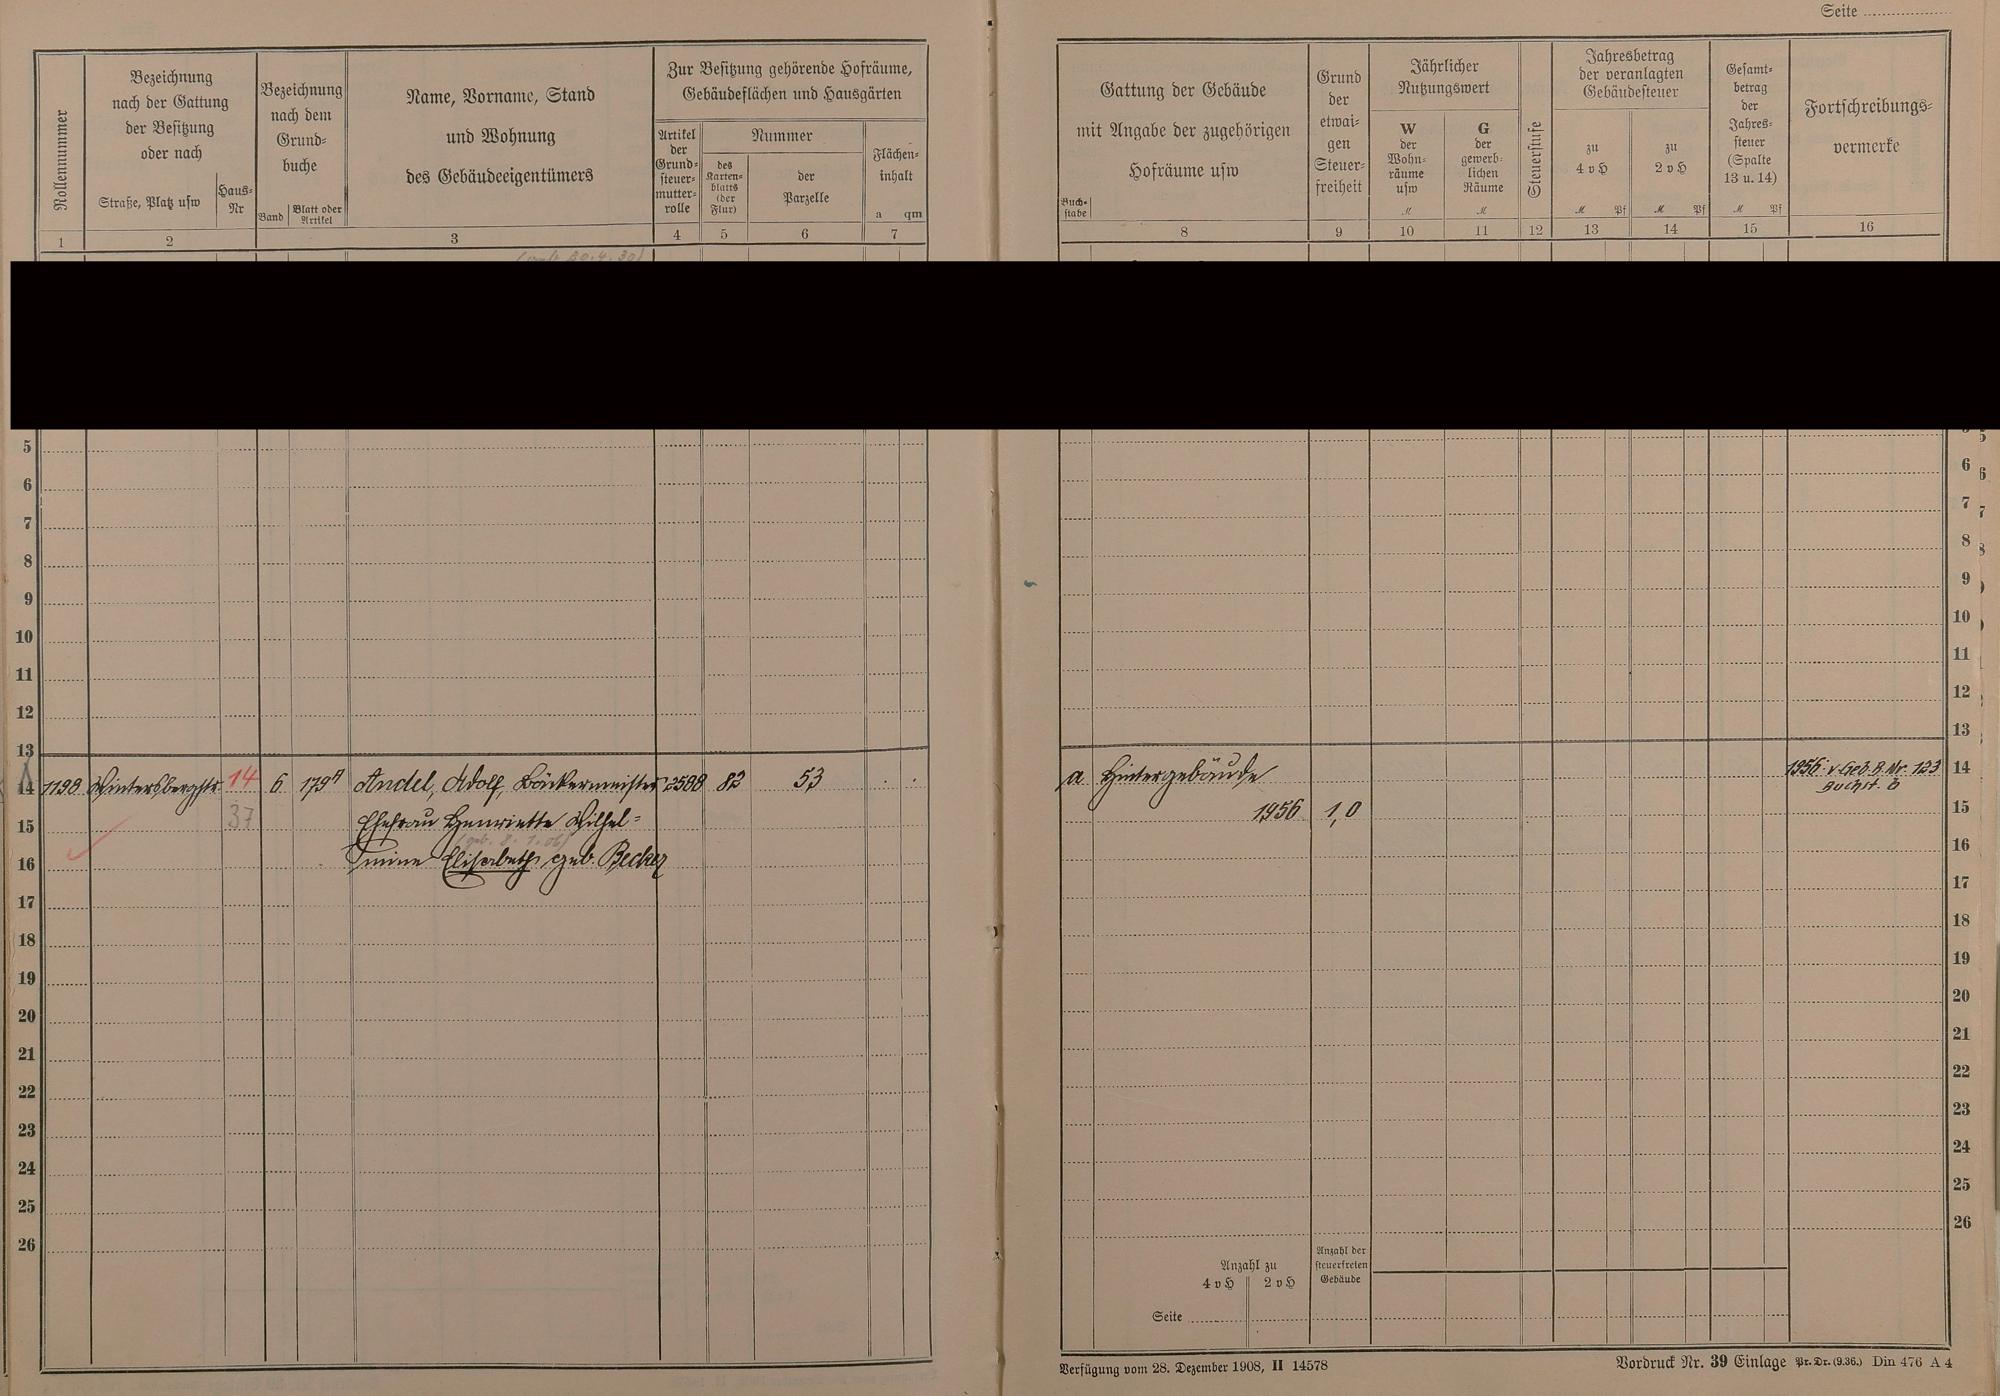 Seite
Rollennummer
Bezeichnung
nach der Gattung
der Besitzung
oder nach
Straße, Platz usw
Haus-
Nr
Bezeichnung
nach dem
Grund-
buche
Band
Blatt oder
Artikel
Name, Vorname, Stand
und Wohnung
des Gebäudeeigentümers
Zur Besitzung gehörende Hofräume,
Gebäudeflächen und Hausgärten
Artikel
der
Grund-
steuer-
mutter-
rolle
Nummer
des
Karten-
blatts
(der
Flur)
der
Parzelle
Flächen-
inhalt
a qm
1 2 3 4 5 6 7
Gattung der Gebäude
mit Angabe der zugehörigen
Hofräume usw
Buch-
stabe
Grund
der
etwai-
gen
Steuer-
freiheit
Jährlicher
Nutzungswert
W
der
Wohn-
räume
usw
M
G
der
gewerb-
lichen
Räume
M
Steuerstufe
Jahresbetrag
der veranlagten
Gebäudesteuer
zu
4 v H
M Pf
zu
2 v H
M Pf
Gesamt-
betrag
der
Jahres-
steuer
(Spalte
13 u. 14)
M Pf
Fortschreibungs-
vermerke
8 9 10 11 12 13 14 15 16
5
6
7
8
9
10
11
12
13
14 1198 Wintersbergstr. 14 6 179A Andel, Adolf, Bäckermeister 2588 82 53
37
15 Ehefrau Henriette Wilhel=
16 mine Elisabeth geb. Becker
17
18
19
20
21
22
23
24
25
26
6
7
8
9
10
11
12
13
a Hintergebäude 1956: v. Geb. B. Nr. 123 14
Buchst. b
1956 1,0 15
16
17
18
19
20
21
22
23
24
25
26
Anzahl zu
4 v H 2 v H
Anzahl der
steuerfreien
Gebäude
Seite
Verfügung vom 28. Dezember 1908, II 14578
Vordruck Nr. 39 Einlage Pr. Dr. (9.36.) Din 476 A 4